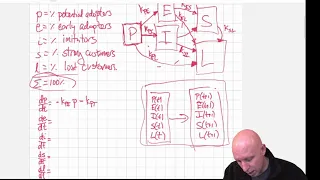 p = % potential adopters
e = % early adopters
i = % imitators
s = % strong customers
l = % lost customers
Σ = 100%
dp/dt = -kPE p - kPI
de/dt =
di/dt =
ds/dt =
dl/dt =
P
E
I
S
L
kPE
kPI
kES
P(t)
E(t)
I(t)
S(t)
L(t)
P(t+1)
E(t+1)
I(t+1)
S(t+1)
L(t+1)